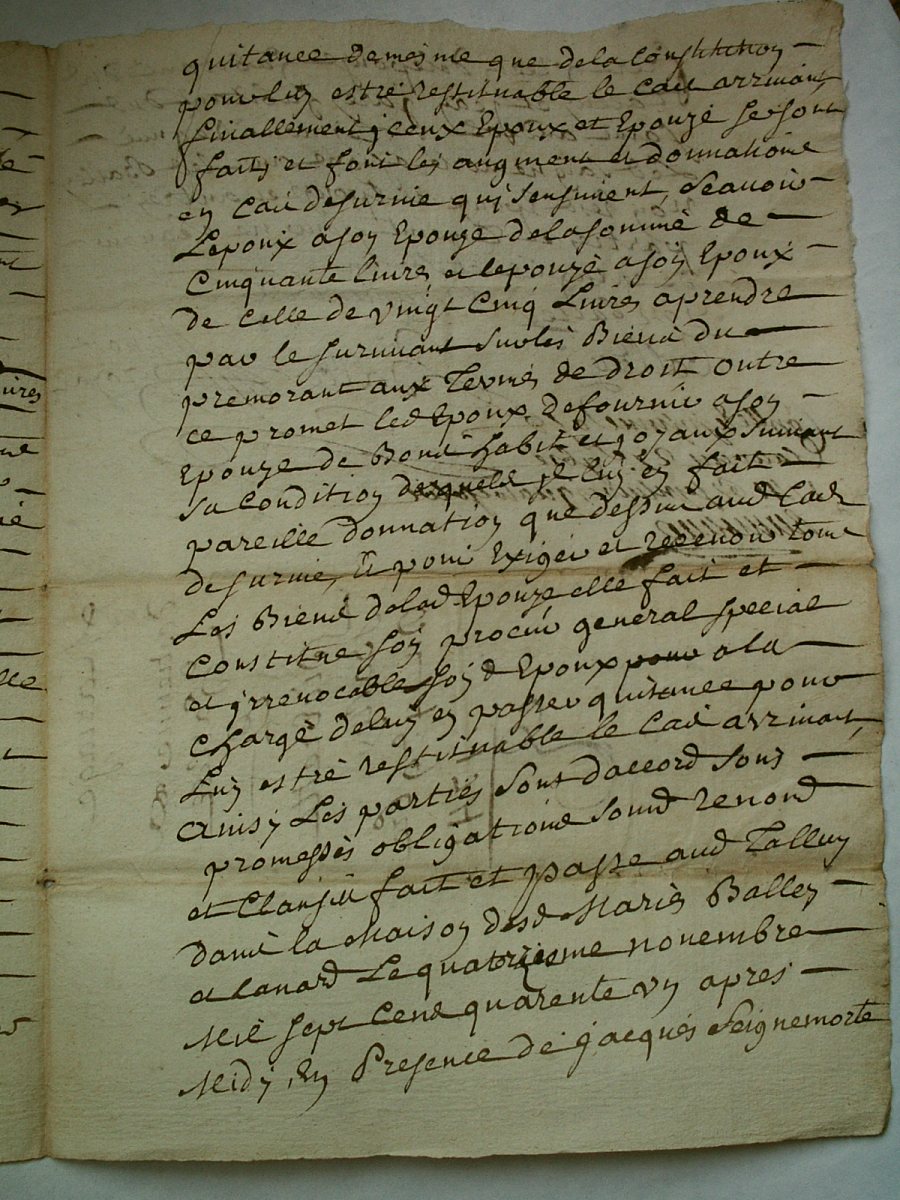 quitance demesme que dela Constitu͠on
pour luy estre restituable le Cas arrivant
finallement yceux Epoux et Epouze se sont
faits et font les augment et donnations
en Cas de survie quy sensuivent, Scavoir
Lepoux a son Epouze dela somme de
Cinquante livres et lepouze a son Epoux
de Celle de vingt Cinq Livres aprendre
par le survivant sur les Biens du
premorant aux Termes de droit outre
ce promet led Epoux de fournir a son
Epouze de Bons habits et joyaux suivant
sa Condition desquels il luy en fait
pareille donnation que dessus aud Cas
de survie, Et pour Exiger et recevoir tous
Les Biens delad Epouze elle fait et
Constitue son procur general special
et yrrevocable son d Epoux pour a la
Charge deluy en passer quitance pour
Luy estre restituable le Cas arrivant
Ainsy Les parties sont daccord sous
promesses obligations soumd renond
et Clauses fait et passe aud Talluy
dans la Maison desd Mariés Balley
et Canard Le quatriesme novembre
Mil sept Cens quarente un apres
Midy, En Presence de jacques Seignemorte